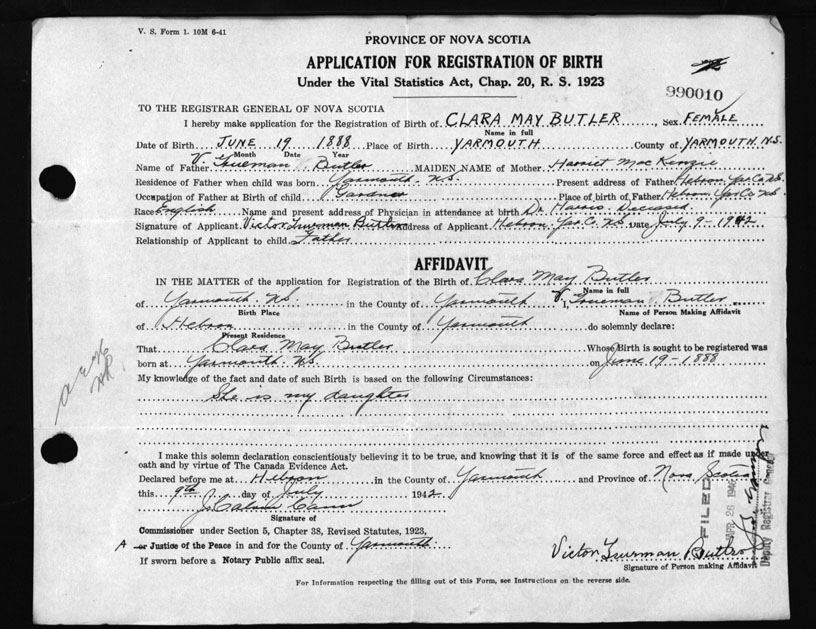 V. S. Form 1. 10M 6-41
PROVINCE OF NOVA SCOTIA
APPLICATION FOR REGISTRATION OF BIRTH
Under the Vital Statistics Act, Chap. 20, R. S. 1923
990010
TO THE REGISTRAR GENERAL OF NOVA SCOTIA
I hereby make application for the Registration of Birth of CLARA MAY BUTLER, Sex FEMALE
Name in full
Date of Birth JUNE 19 1888 Place of Birth YARMOUTH County of YARMOUTH N.S.
Month Date Year
Name of Father V. Trueman Butler MAIDEN NAME of Mother Harriet MacKenzie
Residence of Father when child was born Yarmouth, N.S. Present address of Father Hebron Yar. Co. N.S.
Occupation of Father at Birth of child Gardner Place of birth of Father Hebron Yar Co N.S.
Race English Name and present address of Physician in attendance at birth Dr. Harris Deceased
Signature of Applicant Victor Trueman Butler Address of Applicant Hebron Yar. Co. N.S. Date July 9 - 1942
Relationship of Applicant to child Father
AFFIDAVIT
IN THE MATTER of the application for Registration of the Birth of Clara May Butler
Name in full
of Yarmouth N.S. in the County of Yarmouth I, V. Trueman Butler
Birth Place Name of Person Making Affidavit
of Hebron in the County of Yarmouth do solemnly declare:
Present Residence
That Clara May Butler Whose Birth is sought to be registered was
born at Yarmouth N.S. on June 19 - 1888
My knowledge of the fact and date of such Birth is based on the following Circumstances:
She is my daughter
I make this solemn declaration conscientiously believing it to be true, and knowing that it is of the same force and effect as if made under
oath and by virtue of The Canada Evidence Act.
Declared before me at Hebron in the County of Yarmouth and Province of Nova Scotia
this 9th day of July 1942
J. Calvin Cann
Signature of
Commissioner under Section 5, Chapter 38, Revised Statutes, 1923,
A or Justice of the Peace in and for the County of Yarmouth
If sworn before a Notary Public affix seal.
Victor Trueman Butler
Signature of Person making Affidavit
FILED
APR 28 194
Deputy Registrar General
For Information respecting the filling out of this Form, see Instructions on the reverse side.